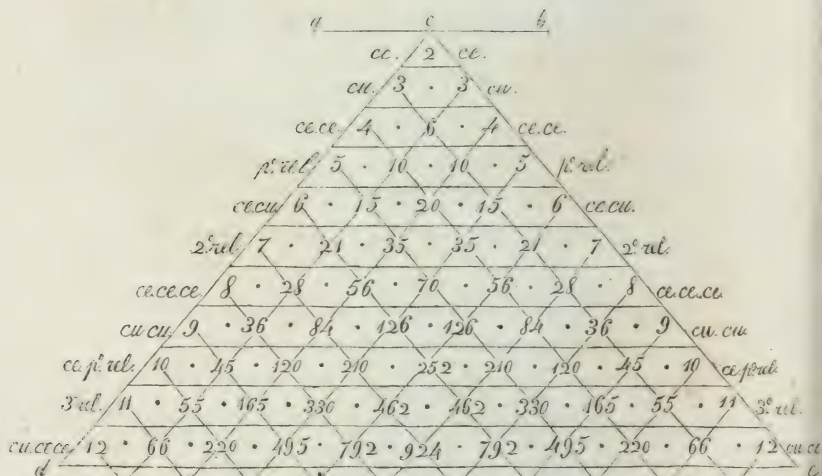 a c b
ce. 2 ce.
cu. 3 · 3 cu.
ce.ce. 4 · 6 · 4 ce.ce.
pº.rel. 5 · 10 · 10 · 5 pº.rel.
ce.cu. 6 · 15 · 20 · 15 · 6 ce.cu.
2º.rel. 7 · 21 · 35 · 35 · 21 · 7 2º.rel.
ce.ce.ce 8 · 28 · 56 · 70 · 56 · 28 · 8 ce.ce.ce
cu cu. 9 · 36 · 84 · 126 · 126 · 84 · 36 · 9 cu. cu
ce.pº.rel. 10 · 45 · 120 · 210 · 252 · 210 · 120 · 45 · 10 ce.pº.rel.
3º.rel. 11 · 55 · 165 · 330 · 462 · 462 · 330 · 165 · 55 · 11 3º.rel.
cu.ce.ce 12 · 66 · 220 · 495 · 792 · 924 · 792 · 495 · 220 · 66 · 12 cu ce
d